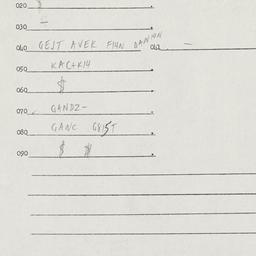 020 $
030 –
040 GEIT AVEK FIAN DAMIAN 042 –
050 KAC+K14
060 $
070 GANDZ–
080 GANC G815T
090 $ $